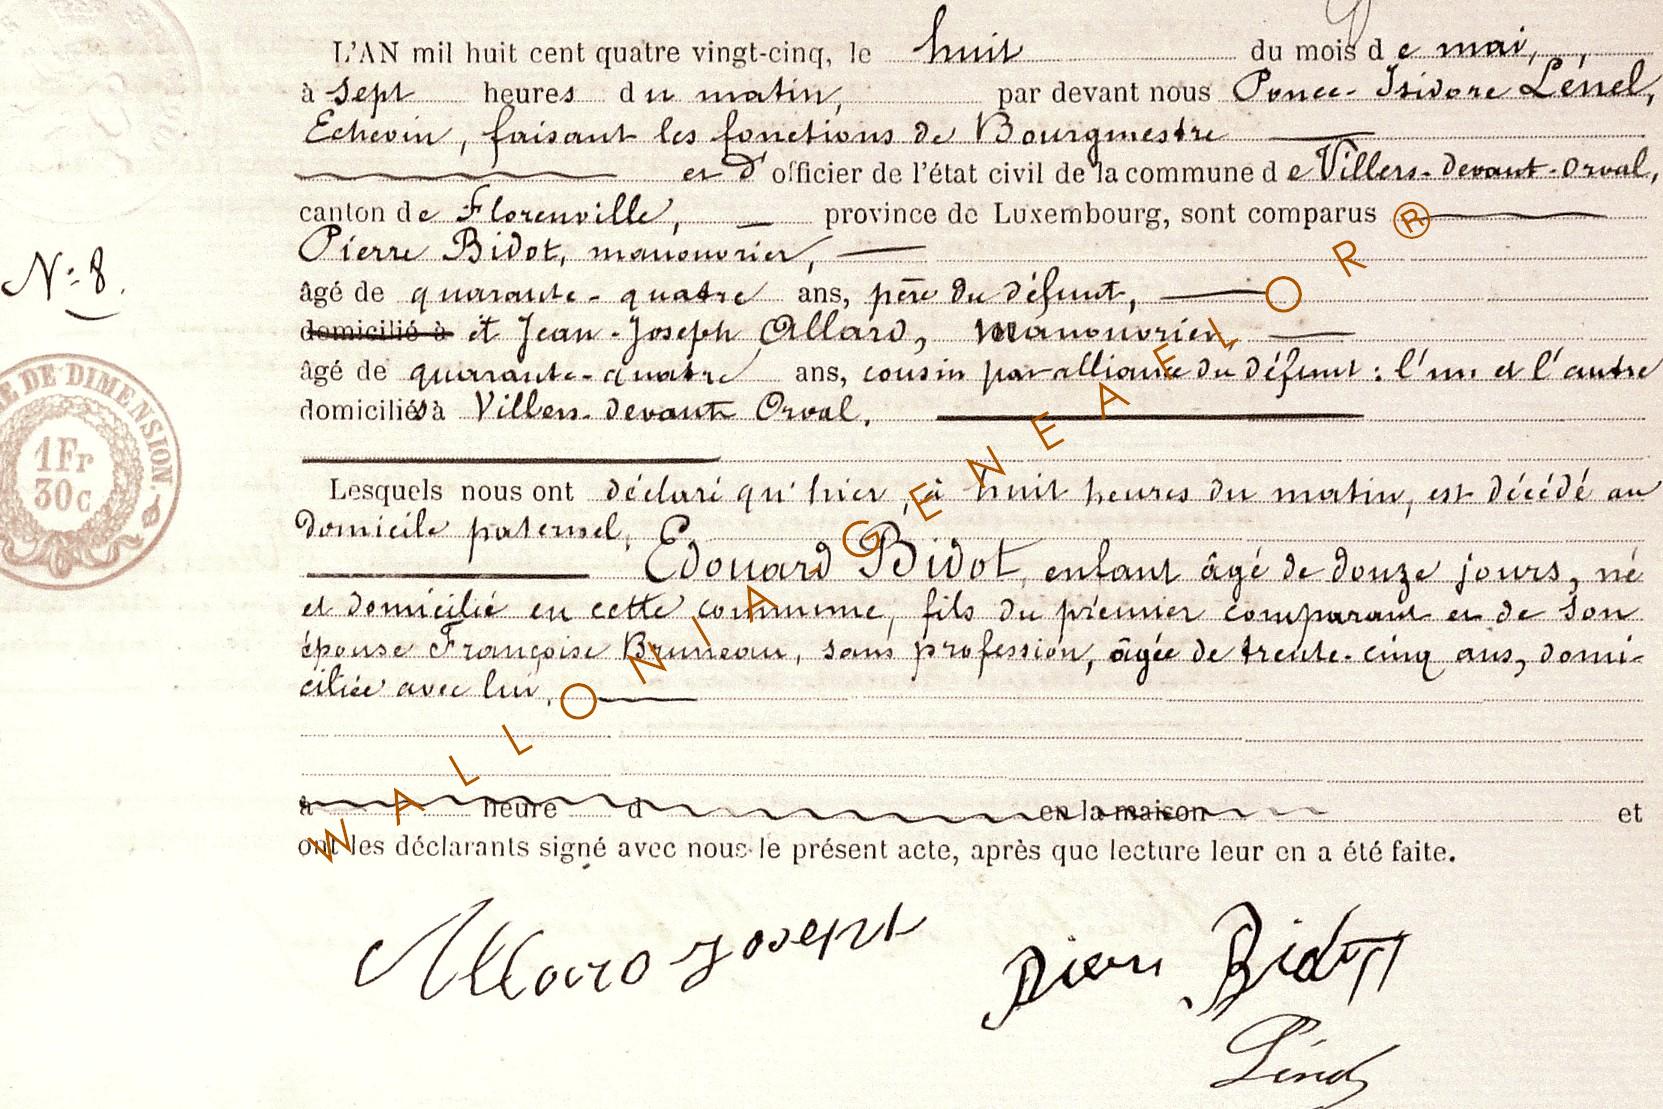 L'AN mil huit cent quatre vingt-cinq, le huit du mois de mai,
à sept heures du matin, par devant nous Ponce-Isidore Lénel,
Echevin, faisant les fonctions de Bourgmestre
et d'officier de l'état civil de la commune de Villers-devant-Orval,
canton de Florenville, province de Luxembourg, sont comparus
Pierre Bidot, manouvrier,
N° 8.
âgé de quarante-quatre ans, père du défunt,
domicilié à et Jean-Joseph Allard, manouvrier
âgé de quarante-quatre ans, cousin par alliance du défunt : l'un et l'autre
domiciliés à Villers-devant Orval.
E DE DIMENSION.
1 Fr
30 c
Lesquels nous ont déclaré qu'hier, à huit heures du matin, est décédé au
domicile paternel,
Edouard Bidot, enfant âgé de douze jours, né
et domicilié en cette commune, fils du premier comparant et de son
épouse Françoise Bruneau, sans profession, âgée de trente-cinq ans, domi-
ciliée avec lui.
à heure d en la maison et
ont les déclarants signé avec nous le présent acte, après que lecture leur en a été faite.
Allard Joseph Pierre Bidot
Lénel
WALLONIA GENEAELOR ®